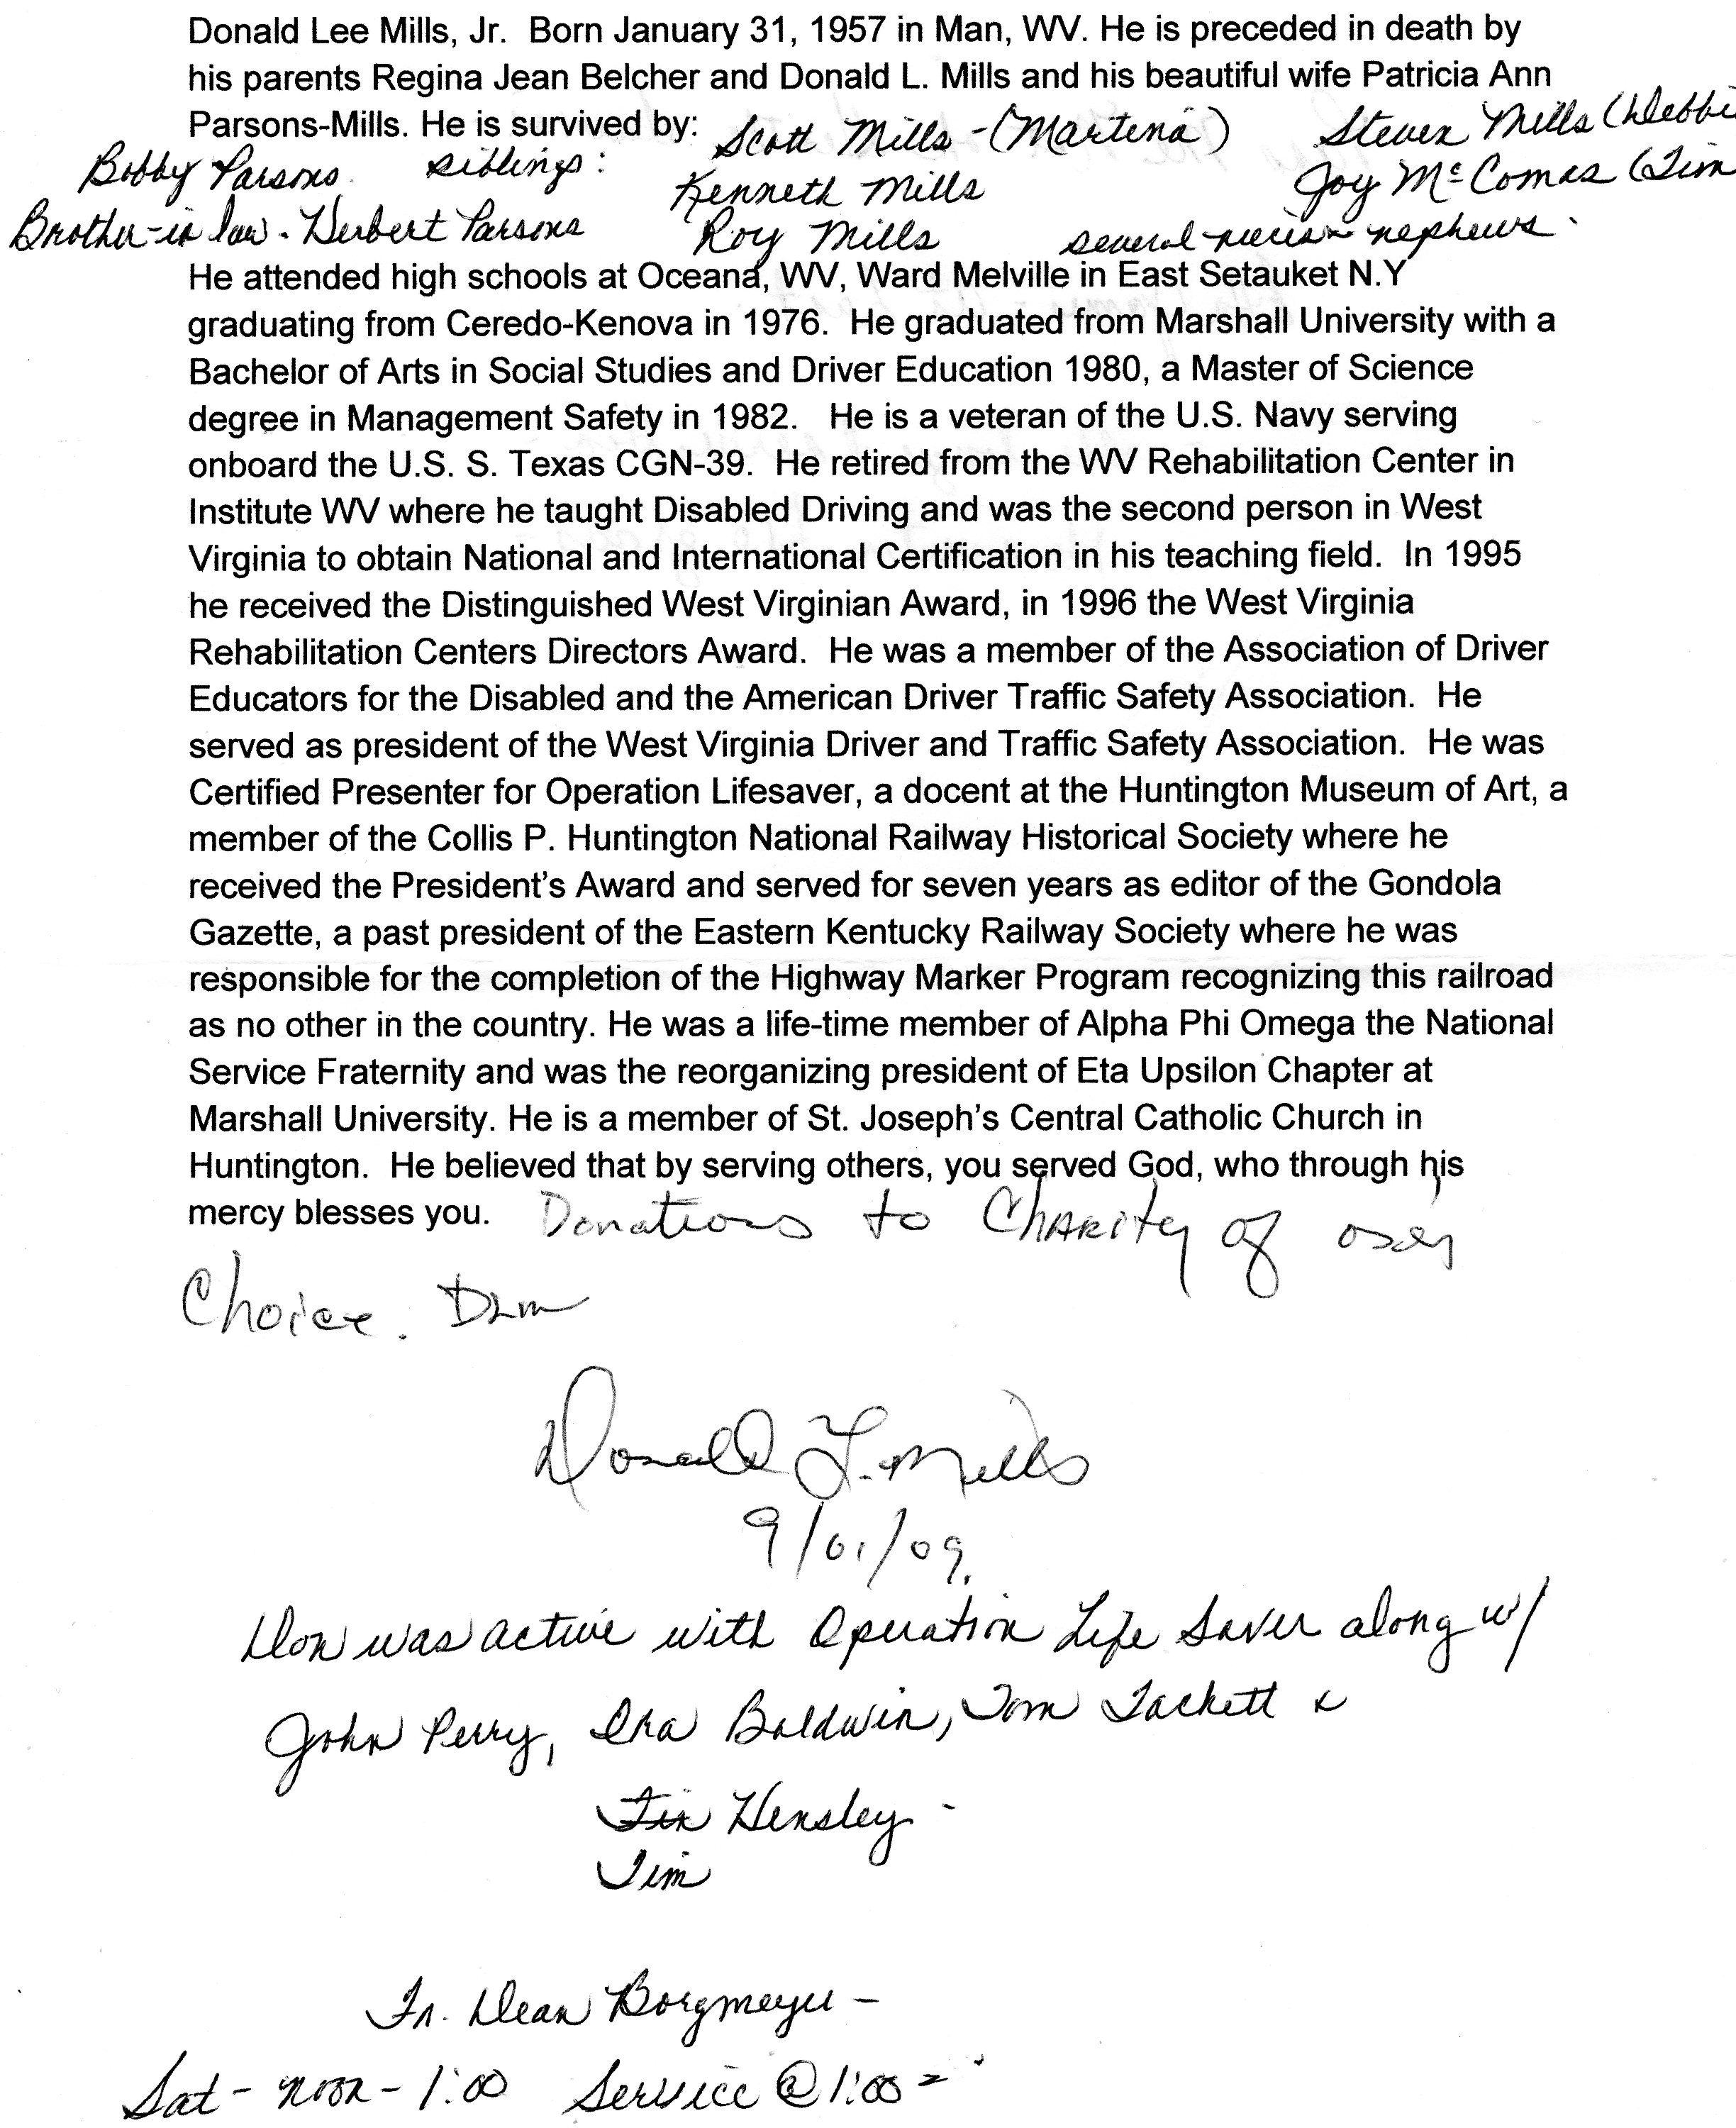 Donald Lee Mills, Jr.  Born January 31, 1957 in Man, WV. He is preceded in death by
his parents Regina Jean Belcher and Donald L. Mills and his beautiful wife Patricia Ann
Parsons-Mills. He is survived by: Scott Mills - (Martena) Steven Mills (Debbi
Bobby Parsons. siblings: Kenneth Mills Joy McComas (Tim
Brother-in law - Herbert Parsons Roy Mills several nephews.
He attended high schools at Oceana, WV, Ward Melville in East Setauket N.Y
graduating from Ceredo-Kenova in 1976.  He graduated from Marshall University with a
Bachelor of Arts in Social Studies and Driver Education 1980, a Master of Science
degree in Management Safety in 1982.   He is a veteran of the U.S. Navy serving
onboard the U.S. S. Texas CGN-39.  He retired from the WV Rehabilitation Center in
Institute WV where he taught Disabled Driving and was the second person in West
Virginia to obtain National and International Certification in his teaching field.  In 1995
he received the Distinguished West Virginian Award, in 1996 the West Virginia
Rehabilitation Centers Directors Award.  He was a member of the Association of Driver
Educators for the Disabled and the American Driver Traffic Safety Association.  He
served as president of the West Virginia Driver and Traffic Safety Association.  He was
Certified Presenter for Operation Lifesaver, a docent at the Huntington Museum of Art, a
member of the Collis P. Huntington National Railway Historical Society where he
received the President's Award and served for seven years as editor of the Gondola
Gazette, a past president of the Eastern Kentucky Railway Society where he was
responsible for the completion of the Highway Marker Program recognizing this railroad
as no other in the country. He was a life-time member of Alpha Phi Omega the National
Service Fraternity and was the reorganizing president of Eta Upsilon Chapter at
Marshall University. He is a member of St. Joseph's Central Catholic Church in
Huntington.  He believed that by serving others, you served God, who through his
mercy blesses you. Donations to Charity of
Choice. DLM
Donald L. Mills
9/01/09
Don was active with Operation Life Saver along w/
John Perry, Ira Baldwin, Tom Tackett &
Tin Hensley -
Tim
Fr. Dean Borgmeyer -
Sat - noon - 1:00 Service @ 1:00 -